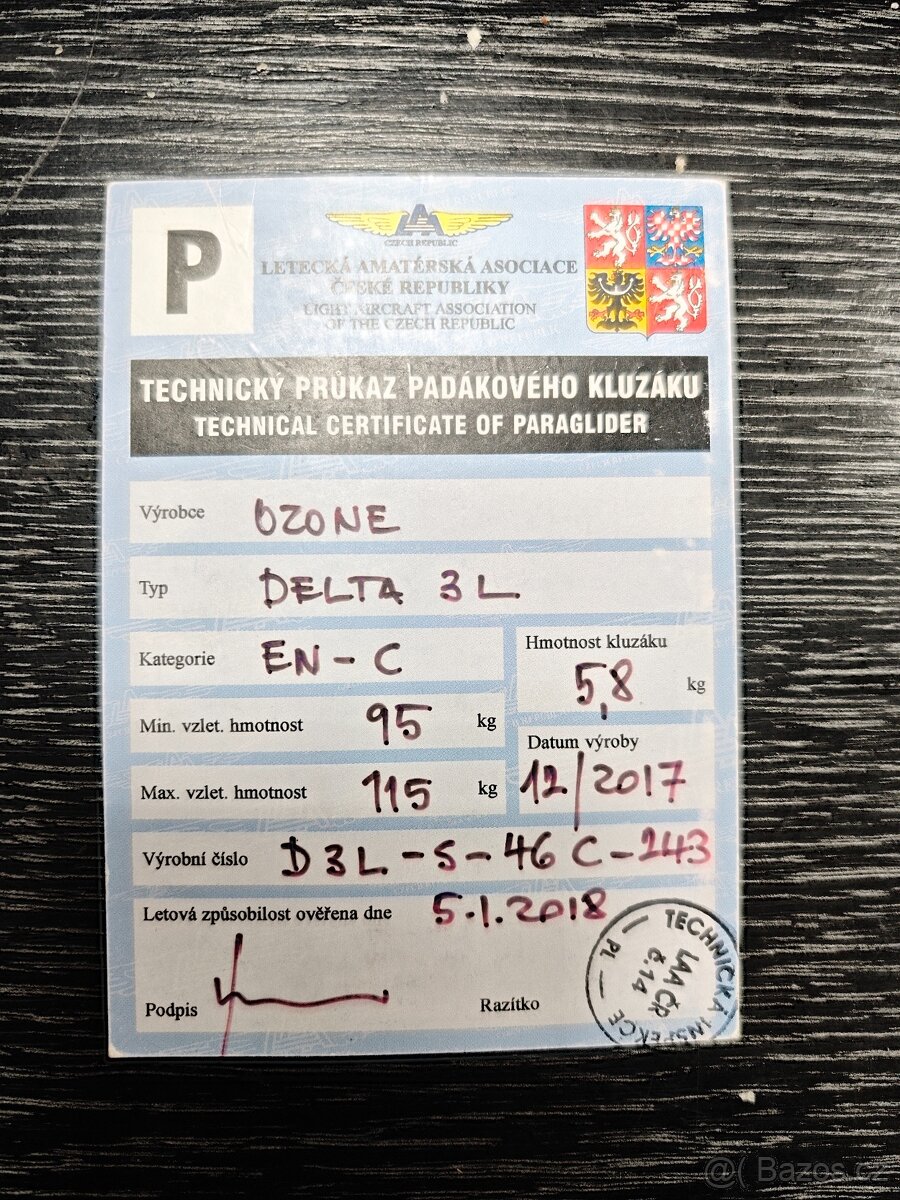 P
CZECH REPUBLIC
LETECKÁ AMATÉRSKÁ ASOCIACE
ČESKÉ REPUBLIKY
LIGHT AIRCRAFT ASSOCIATION
OF THE CZECH REPUBLIC
TECHNICKÝ PRŮKAZ PADÁKOVÉHO KLUZÁKU
TECHNICAL CERTIFICATE OF PARAGLIDER
Výrobce OZONE
Typ DELTA 3 L
Kategorie EN - C
Hmotnost kluzáku
5,8 kg
Min. vzlet. hmotnost 95 kg
Datum výroby
12/2017
Max. vzlet. hmotnost 115 kg
Výrobní číslo D3L-S-46C-243
Letová způsobilost ověřena dne 5.1.2018
Podpis
Razítko
TECHNICKÁ INSPEKCE
LAA ČR
č.14
PL
@( Bazos.cz